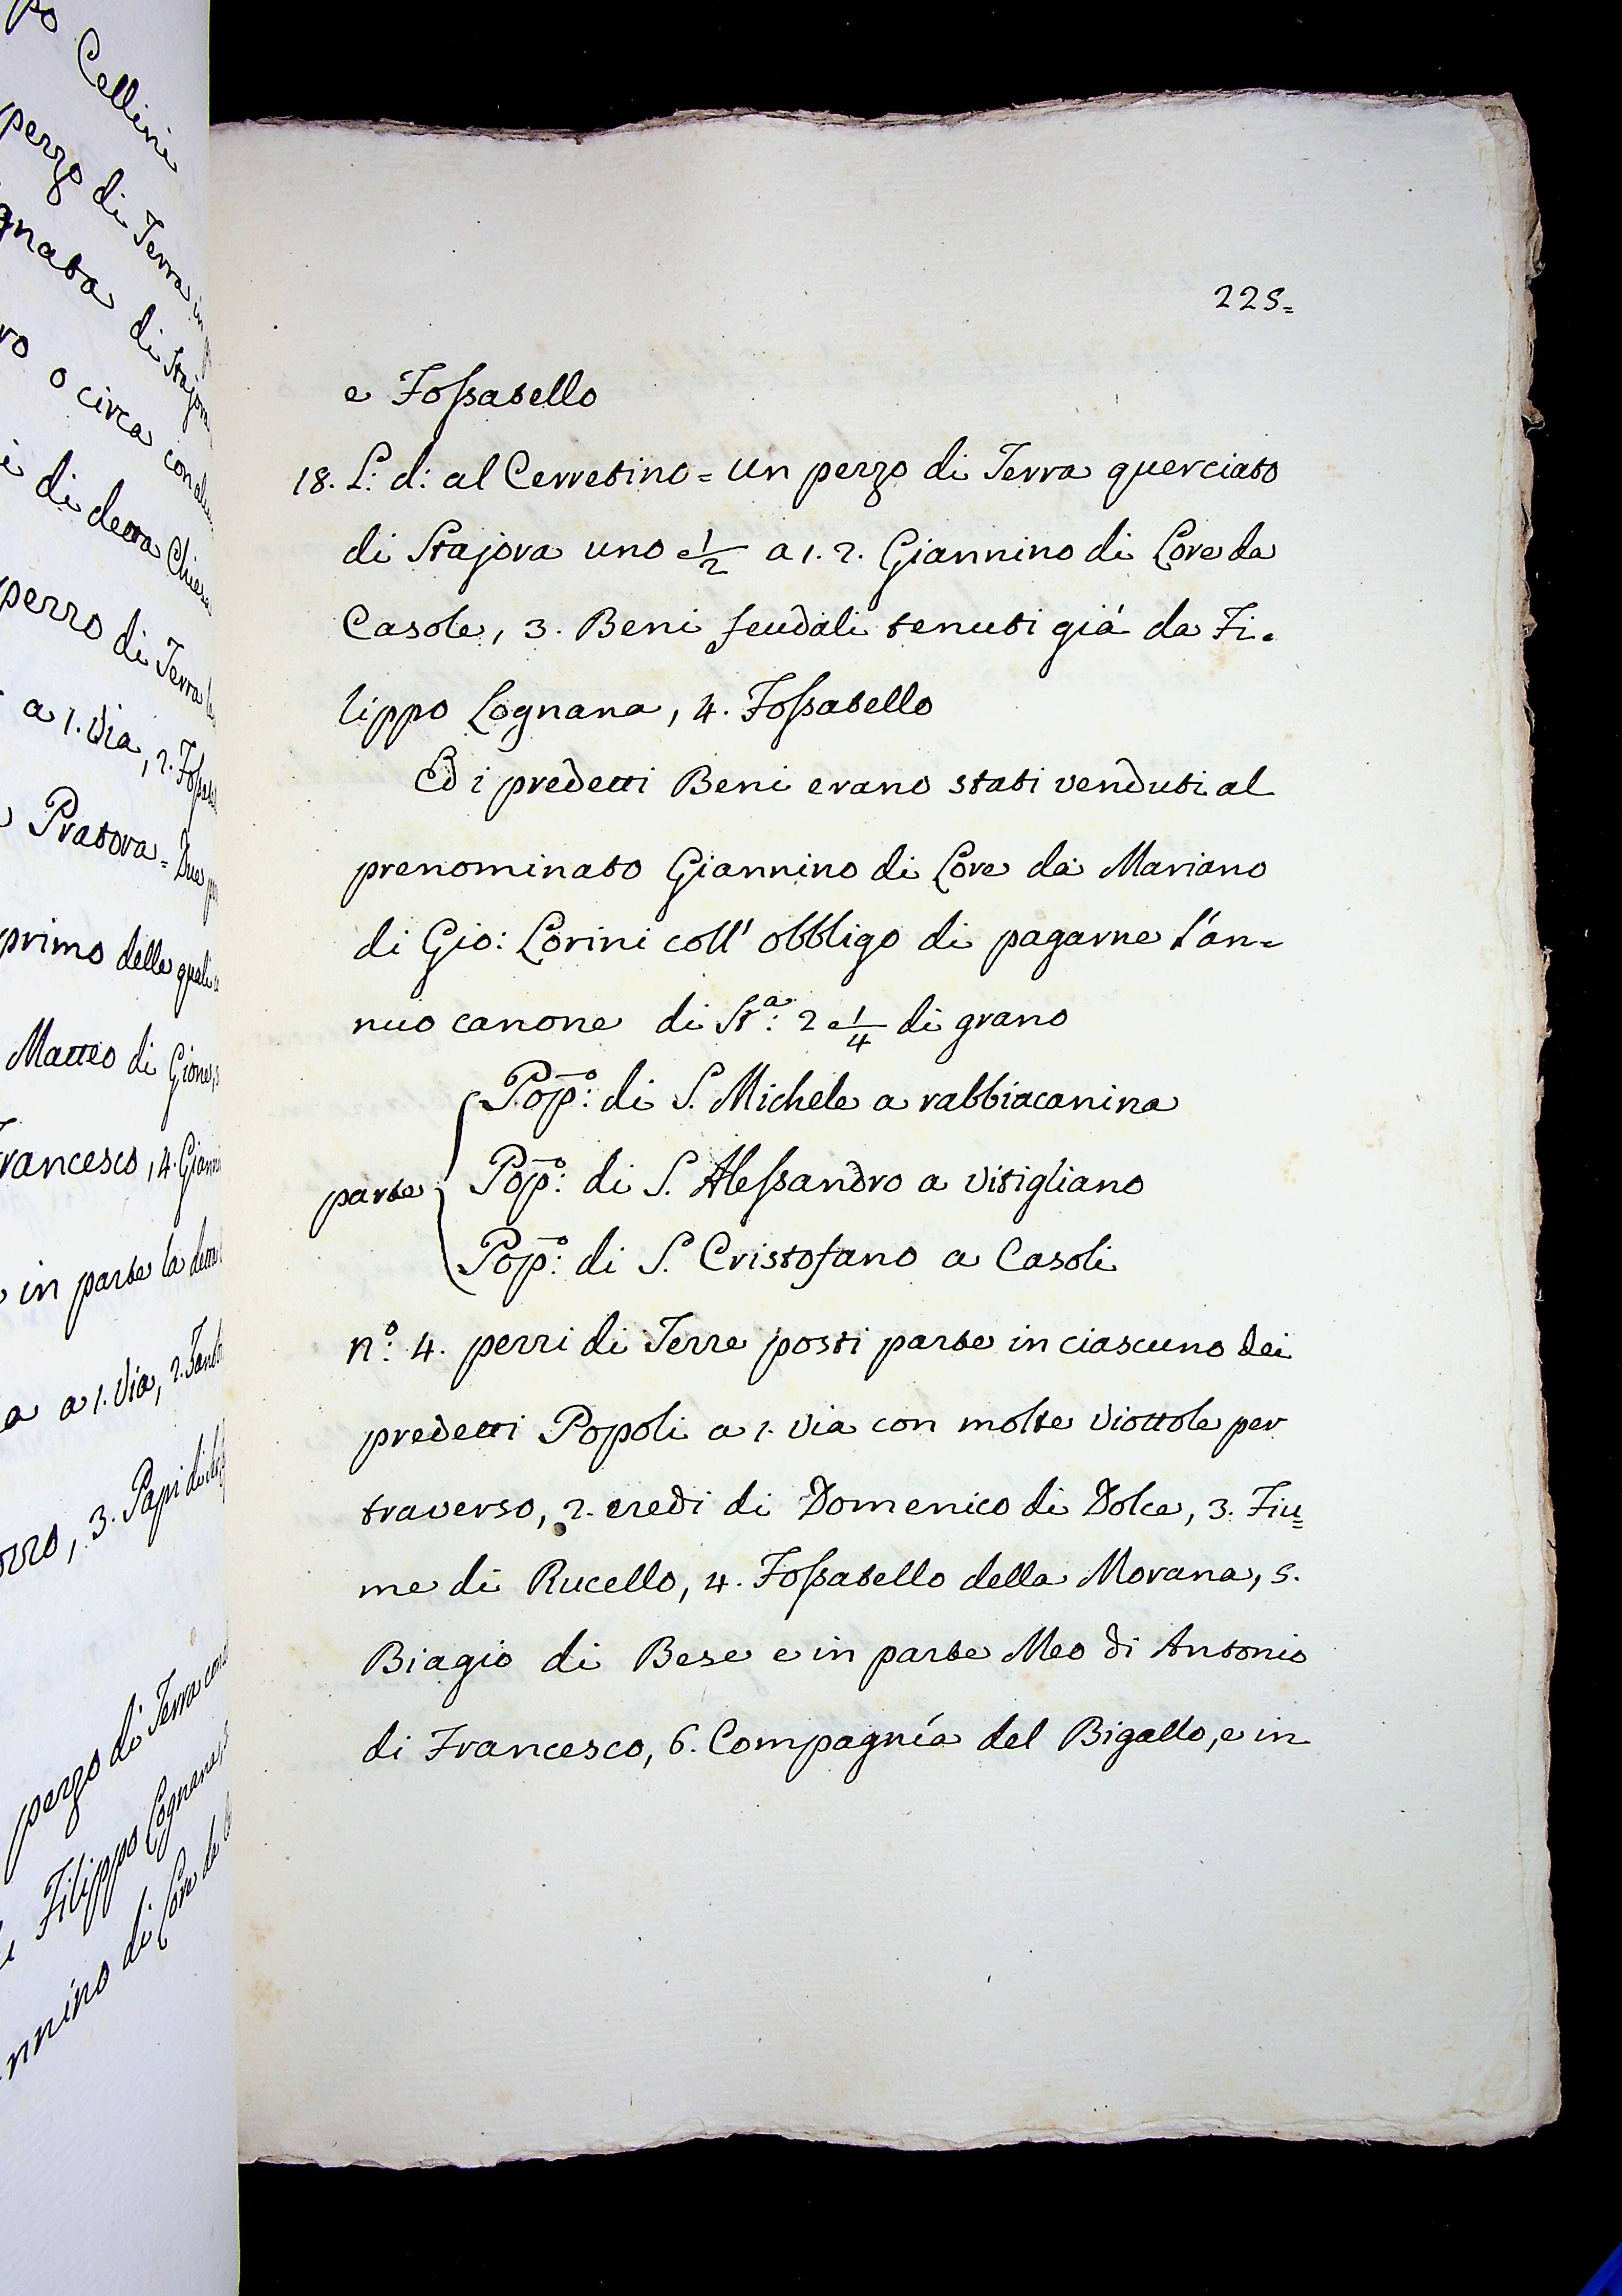 po Cellini
pezzo di Terra in
gnata di Stajora
ro o circa con
i di detta Chiesa
pezzo di Terra
a 1. Via, 2. Fossat
Pratora = Due
primo delle quali
Matteo di Gione
Francesco, 4. Giann
in parte la detta
a a 1. Via, 2.
ozzo, 3. Papi di
pezzo di Terra con
Filippo Lognana
nnino di Lore da
225=
e Fossatello
18. L: d: al Cerretino = un pezzo di Terra querciato
di Stajora uno e 1/2 a 1. 2. Giannino di Lore da
Casole, 3. Beni feudali tenuti giá da Fi=
lippo Lognana, 4. Fossatello
Ed i predetti Beni erano stati venduti al
prenominato Giannino di Lore da Mariano
di Gio: Lorini coll' obbligo di pagarne l'an=
nuo canone di Stª: 2 e 1/4 di grano
Popº: di S. Michele a rabbiacanina
parte Popº: di S. Alessandro a Vitigliano
Popº: di S. Cristofano a Casoli
nº: 4. pezzi di Terre posti parte in ciascuno dei
predetti Popoli a 1. Via con molte Viottole per
traverso, 2. eredi di Domenico di Dolce, 3. Fiu=
me di Rucello, 4. Fossatello della Morana, 5.
Biagio di Bese e in parte Meo di Antonio
di Francesco, 6. Compagnía del Bigallo, e in